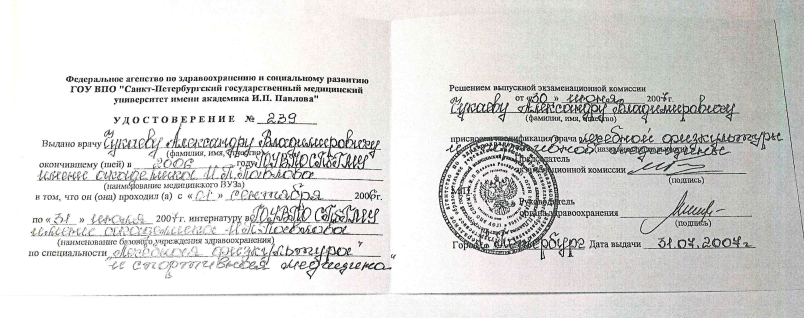 Федеральное агенство по здравоохранению и социальному развитию
ГОУ ВПО "Санкт-Петербургский государственный медицинский
университет имени академика И.П. Павлова"
УДОСТОВЕРЕНИЕ № 239
Выдано врачу Чукаеву Александру Владимировичу
(фамилия, имя, отчество)
окончившему (шей) в 2006 году ГОУВПОСПбГМУ
имени академика И.П. Павлова
(наименование медицинского ВУЗа)
в том, что он (она) проходил (а) с «01» сентября 2006г.
по «31» июля 2007г. интернатуру в ГОУВПО СПбГМУ
имени академика И.П. Павлова
(наименование базового учреждения здравоохранения)
по специальности „Лечебная физкультура
и спортивная медицина"
Решением выпускной экзаменационной комиссии
от «30» июля 2007г.
Чукаеву Александру Владимировичу
(фамилия, имя, отчество)
присвоена квалификация врача лечебной физкультуры
и спортивной медицины
Председатель
экзаменационной комиссии
(подпись)
МП
Руководитель
органа здравоохранения
(подпись)
Город С.-Петербург Дата выдачи 31.07.2007г